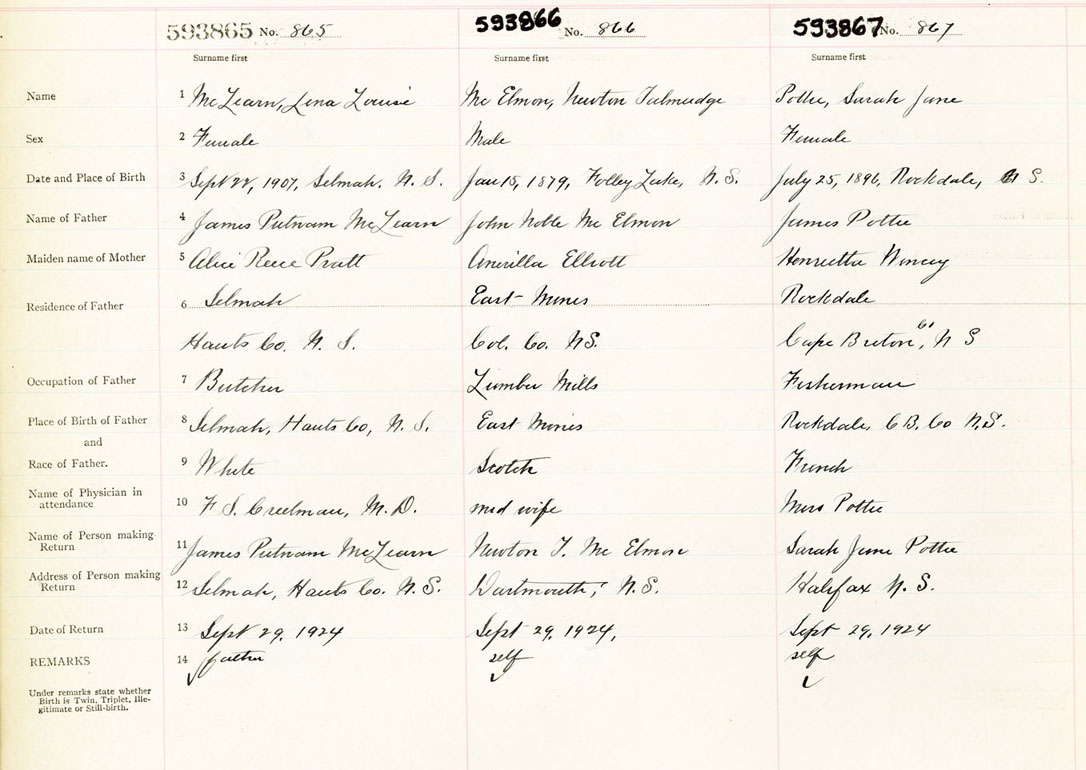 593865 No. 865 593866 No. 866 593867 No. 867
Surname first Surname first Surname first
Name 1 McLearn, Lena Louise Mc Elmon, Newton Talmadge Pottie, Sarah Jane
Sex 2 Female Male Female
Date and Place of Birth 3 Sept 22, 1907, Selmah, N. S. Jan 15, 1879, Folley Lake, N.S. July 25, 1896, Rockdale, N S.
Name of Father 4 James Putnam McLearn John Noble Mc Elmon James Pottie
Maiden name of Mother 5 Alice Reece Pratt Amerilla Elliott Henrietta
Residence of Father 6 Selmah East Mines Rockdale
Hants Co. N. S. Col. Co. NS. Cape Breton Co, N S
Occupation of Father 7 Butcher Lumber Mills Fisherman
Place of Birth of Father 8 Selmah, Hants Co, N. S. East Mines Rockdale, C B. Co N.S.
and
Race of Father. 9 White Scotch French
Name of Physician in
attendance 10 F S. Creelman, M.D. mid wife Mrs Pottie
Name of Person making
Return 11 James Putnam McLearn Newton T. Mc Elmon Sarah Jane Pottie
Address of Person making
Return 12 Selmah, Hants Co. N.S. Dartmouth, N.S. Halifax N. S.
Date of Return 13 Sept 29, 1924 Sept 29, 1924, Sept 29, 1924
REMARKS 14 father self self
Under remarks state whether
Birth is Twin, Triplet, Ille-
gitimate or Still-birth.